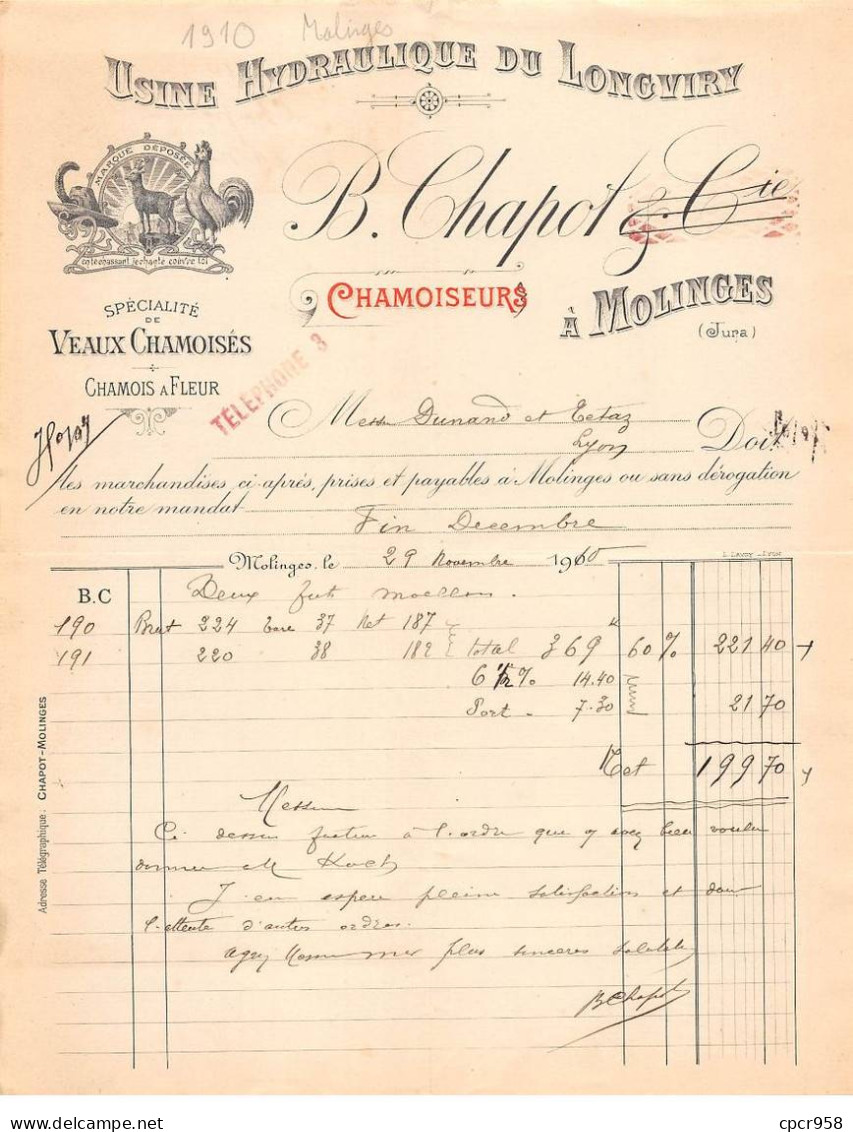 1910 Molinges
USINE HYDRAULIQUE DU LONGVIRY
MARQUE DÉPOSÉE
B. Chapot & Cie
CHAMOISEURS
À MOLINGES
(Jura)
SPÉCIALITÉ
DE
VEAUX CHAMOISÉS
CHAMOIS A FLEUR
TÉLÉPHONE 3
Messrs Dunand et Tetaz
Lyon
Doit
les marchandises ci-après, prises et payables à Molinges ou sans dérogation
en notre mandat
Fin Decembre
Molinges, le 29 Novembre 1910
B.C
Deux futs moellons.
190 Brut 224 tare 37 Net 187
191 220 38 182 total 369 60 % 221 40
6 1/2 % 14.40
Port - 7.30 21 70
Net 199 70
Messieurs
Ci dessus facture à l'ordre que y avez bien voulu
donner à M Koch
J'en espère pleine satisfaction et dans
l'attente d'autres ordres.
agréez Messieurs mes plus sincères salutat
B Chapot
Adresse Télégraphique: CHAPOT-MOLINGES
cpcr958